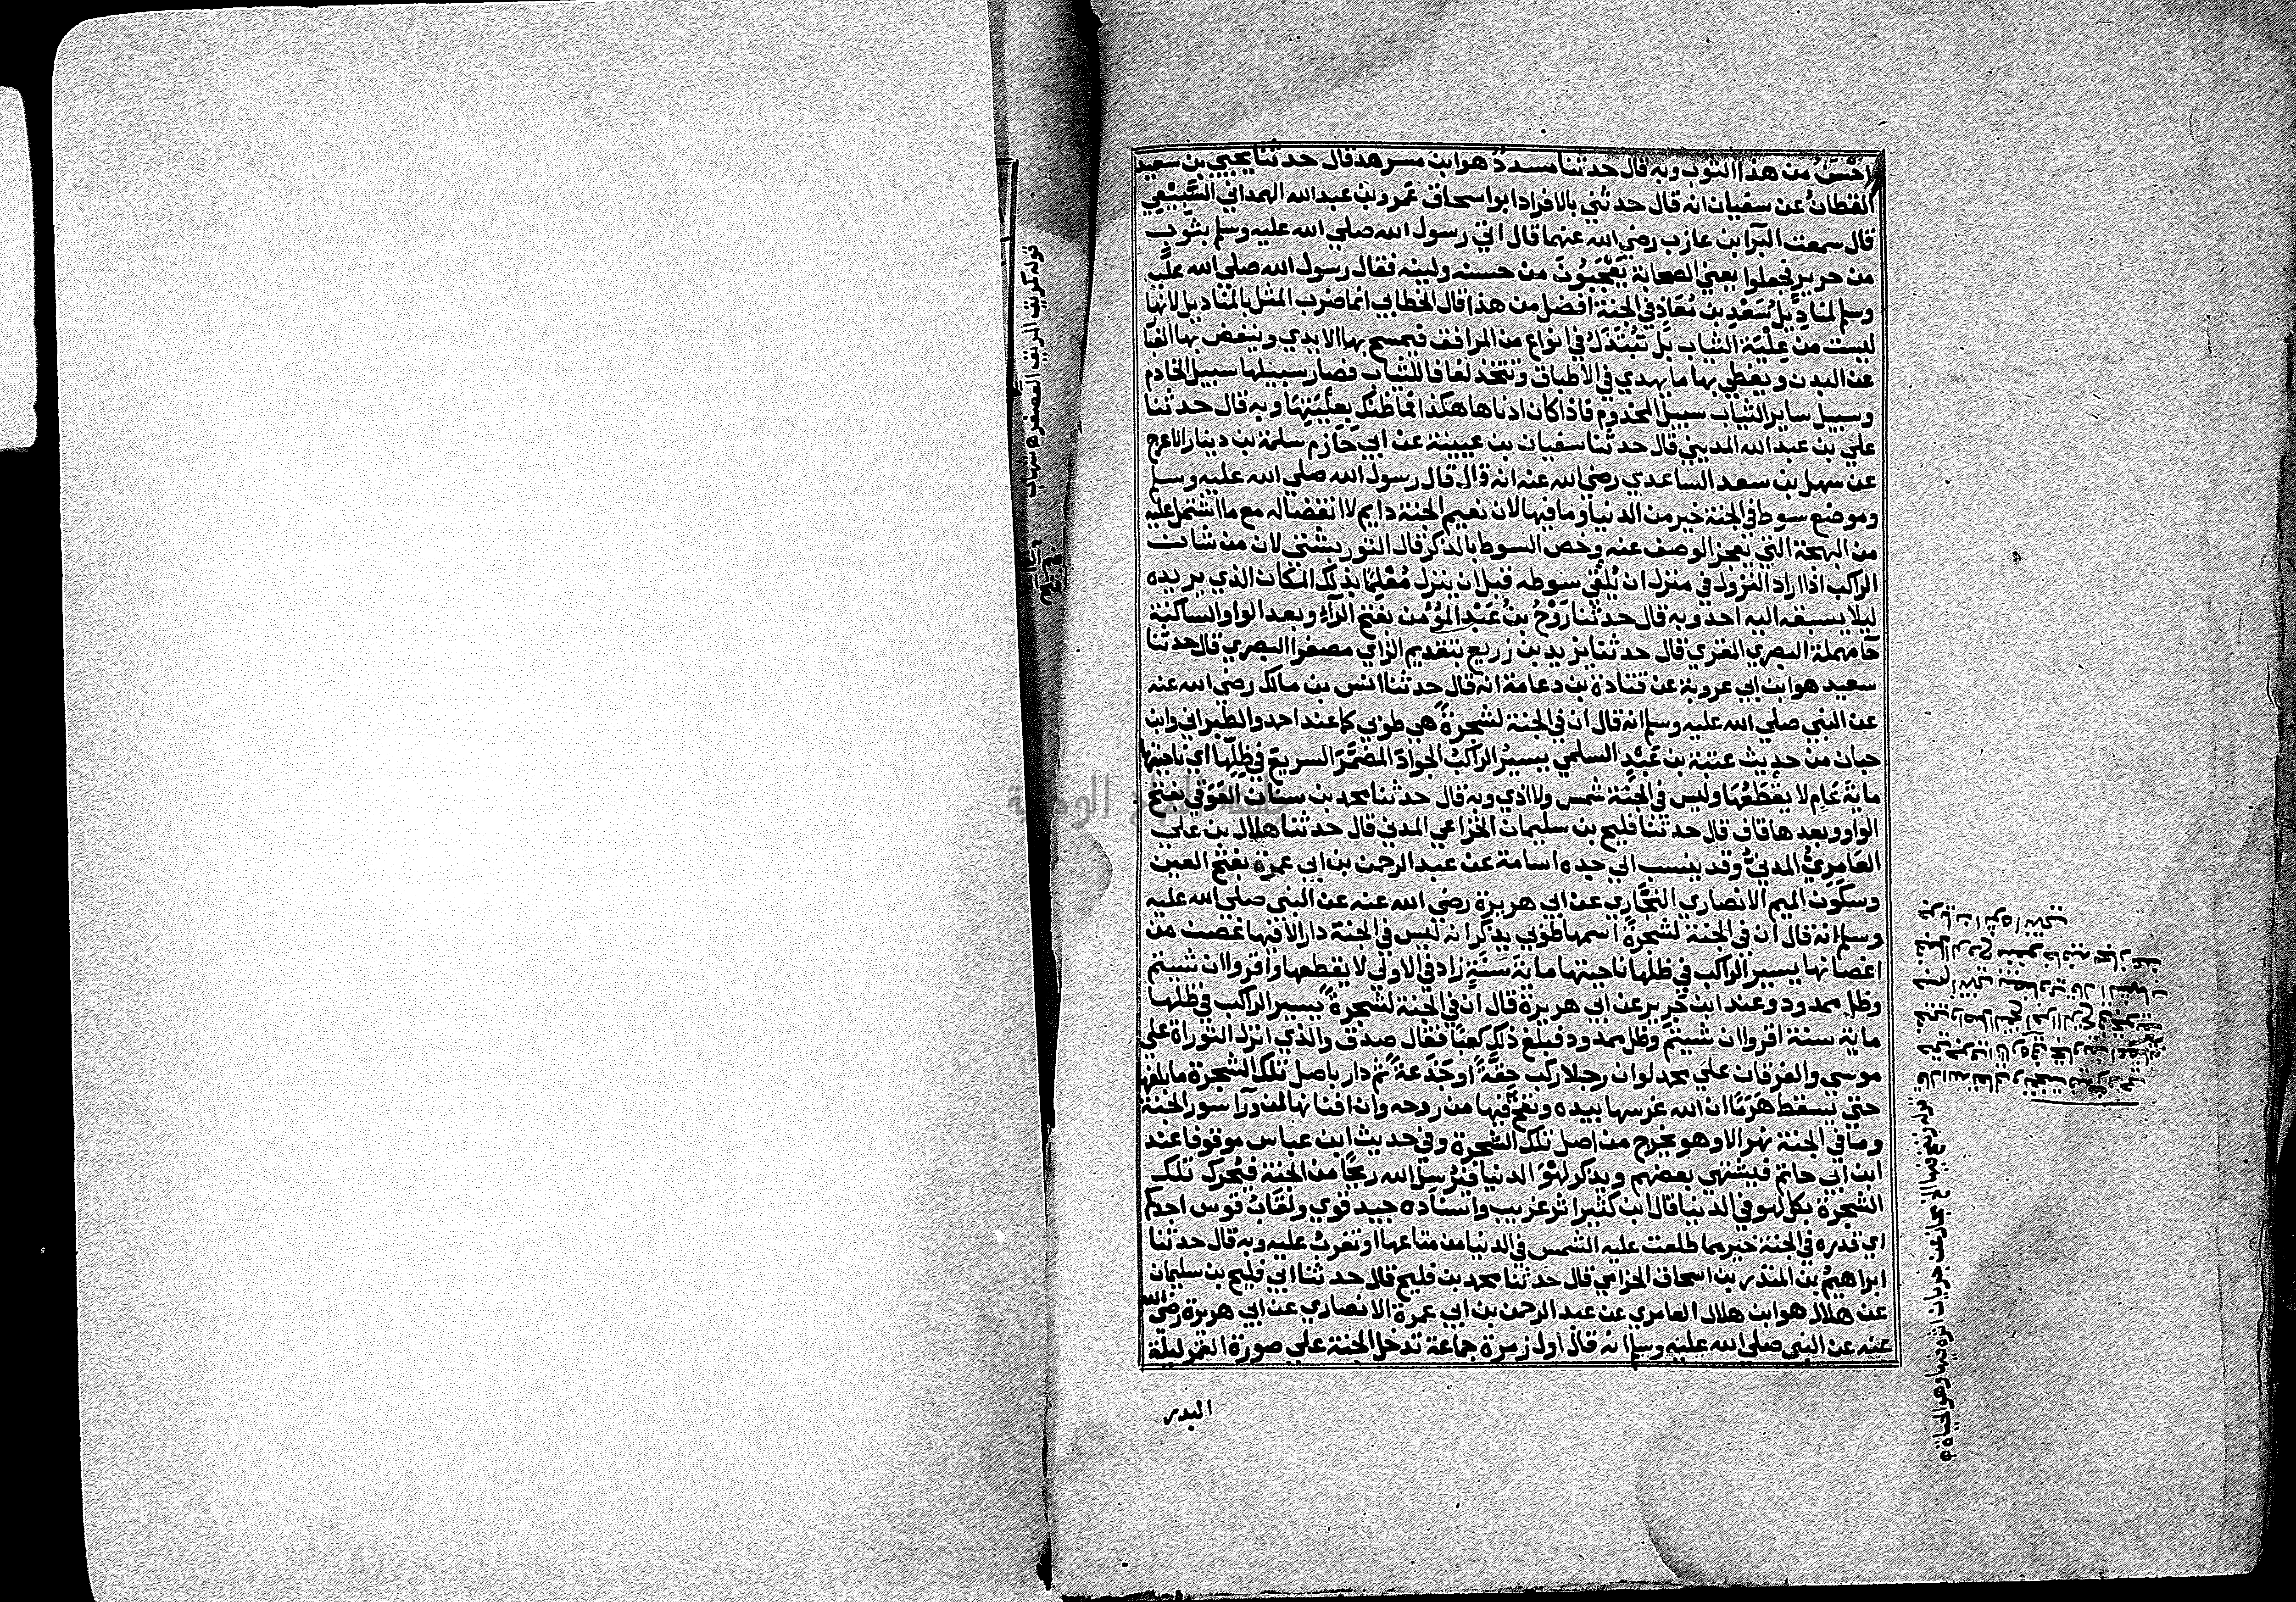 احْسَنُ من هذا الثوب وبه قال حدثنا مسددٌ هو ابن مسرهد قال حدثنا يحيى بن سعيد
القطانُ عن سفيان انه قال حدثني بالافراد ابو اسحاق عَمرو بن عبد الله الهمداني السَّبِيْعي
قال سمعت البرآ ابن عازب رضي الله عنهما قال اتي رسول الله صلي الله عليه وسلم بثوبٍ
من حريرٍ فجعلوا يعني الصحابة يَعْجَبُونَ من حسنه ولينه فقال رسول الله صلي الله عليه
وسلم لمناديلُ سَعْدِ بن مُعَاذٍ في الجنة افضل من هذا قال الخطابي انما ضرب المثل بالمناديل لانها
ليست من عِلْيَة الثياب بل تُبْتَذَلُ في انواع من المرافق فيمسح بها الايدي وينفض بها الغبا
عن البدن ويغطي بها ما يهدي في الاطباق وتتخذ لفافا للثياب فصار سبيلها سبيل الخادم
وسبيل ساير الثياب سبيل المخدوم فاذا كان ادناها هكذا فما ظنك بِعِلْيَتِهَا وبه قال حدثنا
علي بن عبد الله المديني قال حدثنا سفيان بن عيينة عن ابي حَازم سلمة بن دينار الاعرج
عن سهل بن سعد الساعدي رضي الله عنه انه قال قال رسول الله صلي الله عليه وسلم
وموضع سوط في الجنة خير من الدنيا وما فيها لان نعيم الجنة دايم لا انقضا له مع ما اشتمل عليه
من البهجة التي يعجز الوصف عنه وخص السوط بالذكر قال التوربشتي لان من شان
الراكب اذا اراد النزول في منزل ان يُلْقي سوطه قبل ان ينزل مُعْلِمًا بذلك المكان الذي يريده
ليلا يسبقه اليه احد وبه قال حدثنا رَوْحُ بنُ عَبْدِ المؤمن بفتح الرآء وبعد الواو الساكنة
حا مهملة البصري المقري قال حدثنا يزيد بن زريع بتقديم الزاي مصغرا البصري قال حدثنا
سعيد هو ابن ابي عروبة عن قتادة بن دعامة انه قال حدثنا انس بن مالك رضي الله عنه
عن النبي صلي الله عليه وسلم انه قال ان في الجنة لشجرةً هي طوبي كما عند احمد والطبراني وابن
حبان من حديث عتبة بن عَبْدٍ السلمي يسيرُ الراكبُ الجوادَ المضمَّرَ السريعَ في ظِلِّها اي ناحيتها
ماية عَامٍ لا يقطَعُهَا وليس في الجنة شمس ولا اذي وبه قال حدثنا محمد بن سنان العَوَقي بفتح
الواو وبعدها قاف قال حدثنا فليح بن سليمان الخزاعي المدني قال حدثنا هلال بن علي
العَامِرِيُّ المدنيُّ وقد ينسب الي جده اسامة عن عبد الرحمن بن ابي عمرة بفتح العين
وسكون الميم الانصاري النجَّاري عن ابي هريرة رضي الله عنه عن النبي صلي الله عليه
وسلم انه قال ان في الجنة لشجرةً اسمها طوبي يذكر انه ليس في الجنة دار الا فيها غصن من
اغصانها يسير الراكب في ظلها ناحيتها ماية سَنَةٍ زاد في الاولي لا يقطعها واقروا ان شيتم
وظل ممدود وعند ابن جَرِير عن ابي هريرة قال ان في الجنة لشجرةً يسير الراكب في ظلها
ماية سنة اقروا ان شيتم وظل ممدود فبلغ ذلك كعبًا فقال صدق والذي انزل التوراة علي
موسي والفرقان علي محمد لو ان رجلا ركب حِقَّةً او جَذَعَةً ثم دار باصل تلك الشجرة ما بلغها
حتي يسقط هَرَمًا ان الله غرسها بيده ونفخ فيها من روحه وان افنانها لمن ورآ سور الجنة
وما في الجنة نهر الا وهو يخرج من اصل تلك الشجرة وفي حديث ابن عباس موقوفا عند
ابن ابي حاتم فيشتهي بعضهم ويذكر لهْوَ الدنيا فيُرْسِل الله ريحًا من الجنة فتُحرك تلك
الشجرة بكل لهو في الدنيا قال ابن كثير اثر غريب واسناده جيد قوي ولَقَابُ قوس احدكم
اي قدره في الجنة خير مما طلعت عليه الشمس في الدنيا من متاعها او تغربُ عليه وبه قال حدثنا
ابراهيمُ بن المنذر بن اسحاق الحزامي قال حدثنا محمد بن فليح قال حدثنا ابي فليح بن سليمان
عن هلال هو ابن هلال العامري عن عبد الرحمن بن ابي عمرة الانصاري عن ابي هريرة رضي الله
عنه عن النبي صلي الله عليه وسلم انه قال اول زمرة جماعة تدخل الجنة علي صورة القمر ليلة
البدر
قوله ونفخ فيها الخ مجاز عن جريان اثره فيها وهو الحياة